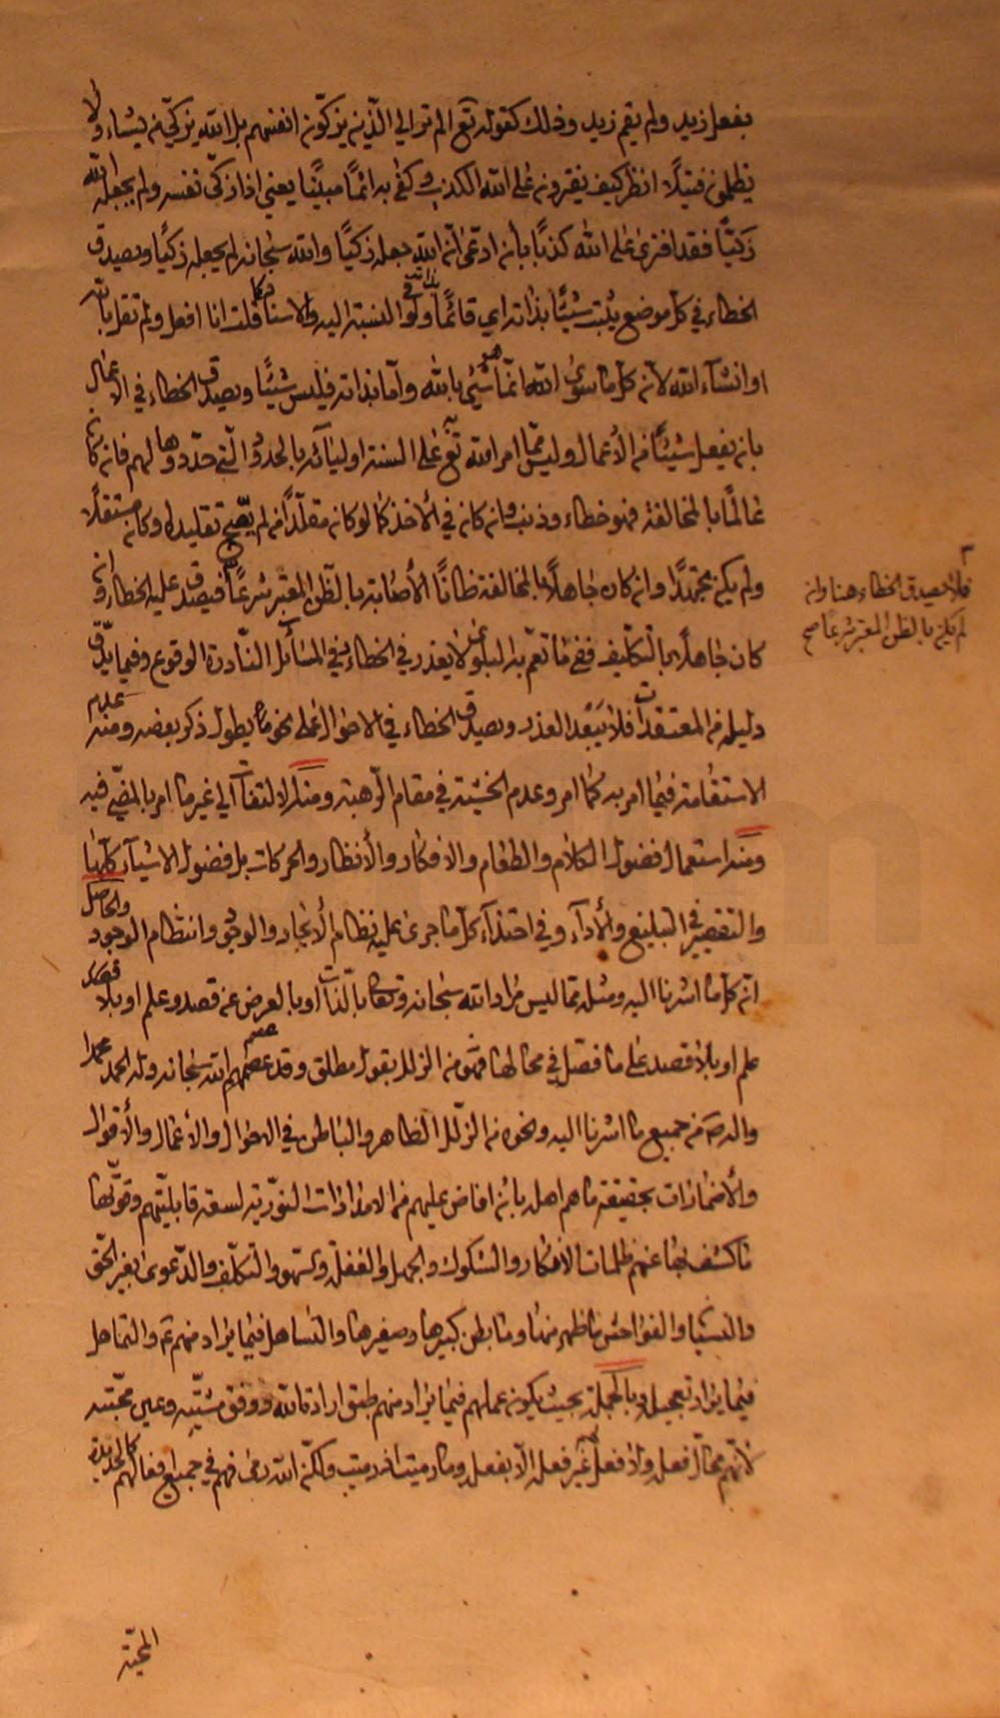 بفعل زيد ولم يقم زيد وذلك كقوله تع الم تر الى الذين يزكون انفسهم بل الله يزكي من يشاء ولا
يظلمون فتيلا انظر كيف يفترون على الله الكذب وكفى به اثما مبينا يعني اذا زكى نفسه ولم يجعله الله
زكيا فقد افترى على الله كذبا بان ادعى ان الله جعله زكيا والله سبحانه لم يجعله زكيا ويصدق
الخطاء في كل موضع يثبت شيئا بذاته اي قائما ولو النسبة اليه والاسناد قلت انا افعل ولم تقل بالله
او انشاء الله لانه كل ما سوى الله انما هو شيء بالله واما بذاته فليس شيئا ويصدق الخطاء في الاعمال
بان يفعل شيئا من الاعمال وليس مما امر الله تع على السنة اوليائه بالحدود التي حددوها لهم فان كان
عالما بالمخالفة فهو خطاء وذنب وان كان في الاخذ كما لو كان مقلدا من لم يصح تقليده او كان مستقلا
ولم يكن مجتهدا وان كان جاهلا بالمخالفة ظانا الاصابة بالظن المعتبر شرعا فيصدق عليه الخطاء وان
كان جاهلا بالتكليف ففي ما تعم به البلوى لا يعذر في الخطاء وفي المسائل النادرة الوقوع وفيما يدق
دليله من المعتقدات فلا يبعد العذر ويصدق الخطاء في الاحوال على نحو ما يطول ذكر بعضه ومنه عدم
الاستقامة فيما امر به كما امر وعدم الخشية في مقام الرهبة ومنه الالتفات الى غير ما امر بالمضي فيه
ومنه استعمال فضول الكلام والطعام والافكار والأنظار والحركات بل فضول الاشياء كلها
والتقصير في التبليغ والأداء وفي احتذاء كل ما جرى عليه نظام الأيجاد والوجود وانتظام الوجود والحاصل
ان كل ما اشرنا اليه ومثله مما ليس مراد الله سبحانه وتعالى بالذات او بالعرض عن قصد وعلم او بلا قصد
علم او بلا قصد على ما فصل في محالها فهو من الزلل بقول مطلق وقد عصمهم الله سبحانه وله الحمد محمدا
واله ص من جميع ما اشرنا اليه ونحوه من الزلل الظاهر والباطن في الاحوال والأعمال والأقوال
والأضمارات بحقيقة ما هم اهله بان افاض عليهم من الامدادات النورية لسعة قابليتهم وقوتها
ما كشف بها عنهم ظلمات الافكار والشكوك والجهل والغفلة والسهو والتكلف والدعوى بغير الحق
والنسيان والفواحش ما ظهر منها وما بطن كبيرها وصغيرها والتساهل فيما يراد منهم ثم والتماهل
فيما يراد تعجيله وبالجملة بحيث يكون عملهم فيما يراد منهم طبق ارادة الله ووفق مشيته وعين محبته
لانهم محال فعله واذ فعله غير فعله الا بفعله وما رميت اذ رميت ولكن الله رمى فهم في جميع افعالهم كالحديدة
فلا يصدق الخطاء هنا وان
لم يكن بالظن المعتبر شرعا صح
المحمية